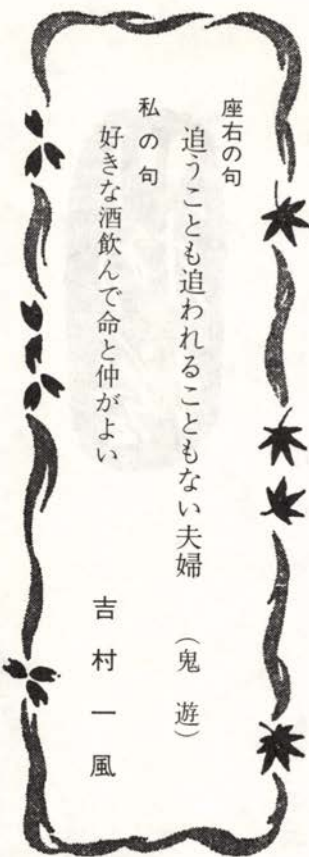 座右の句
追うことも追われることもない夫婦　（鬼　遊）
私の句
好きな酒飲んで命と仲がよい
吉村一風